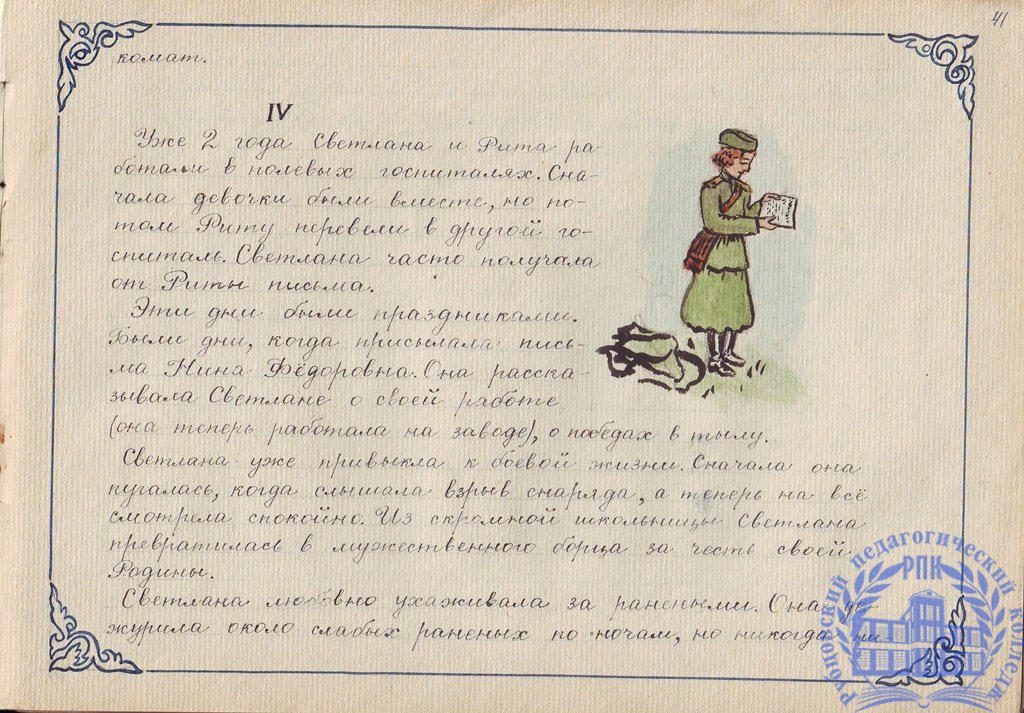 41
комат.
IV
Уже 2 года Светлана и Рита ра-
ботали в полевых госпиталях. Сна-
чала девочки были вместе, но по-
том Риту перевели в другой го-
спиталь. Светлана часто получала
от Риты письма.
Эти дни были праздниками.
Были дни, когда присылала пись-
ма Нина Фёдоровна. Она расска-
зывала Светлане о своей работе
(она теперь работала на заводе), о победах в тылу.
Светлана уже привыкла к боевой жизни. Сначала она
пугалась, когда слышала взрыв снаряда, а теперь на всё
смотрела спокойно. Из скромной школьницы Светлана
превратилась в мужественного борца за честь своей
Родины.
Светлана любовно ухаживала за ранеными. Она де-
журила около слабых раненых по ночам, но никогда ни-
Рубцовский педагогический колледж
РПК